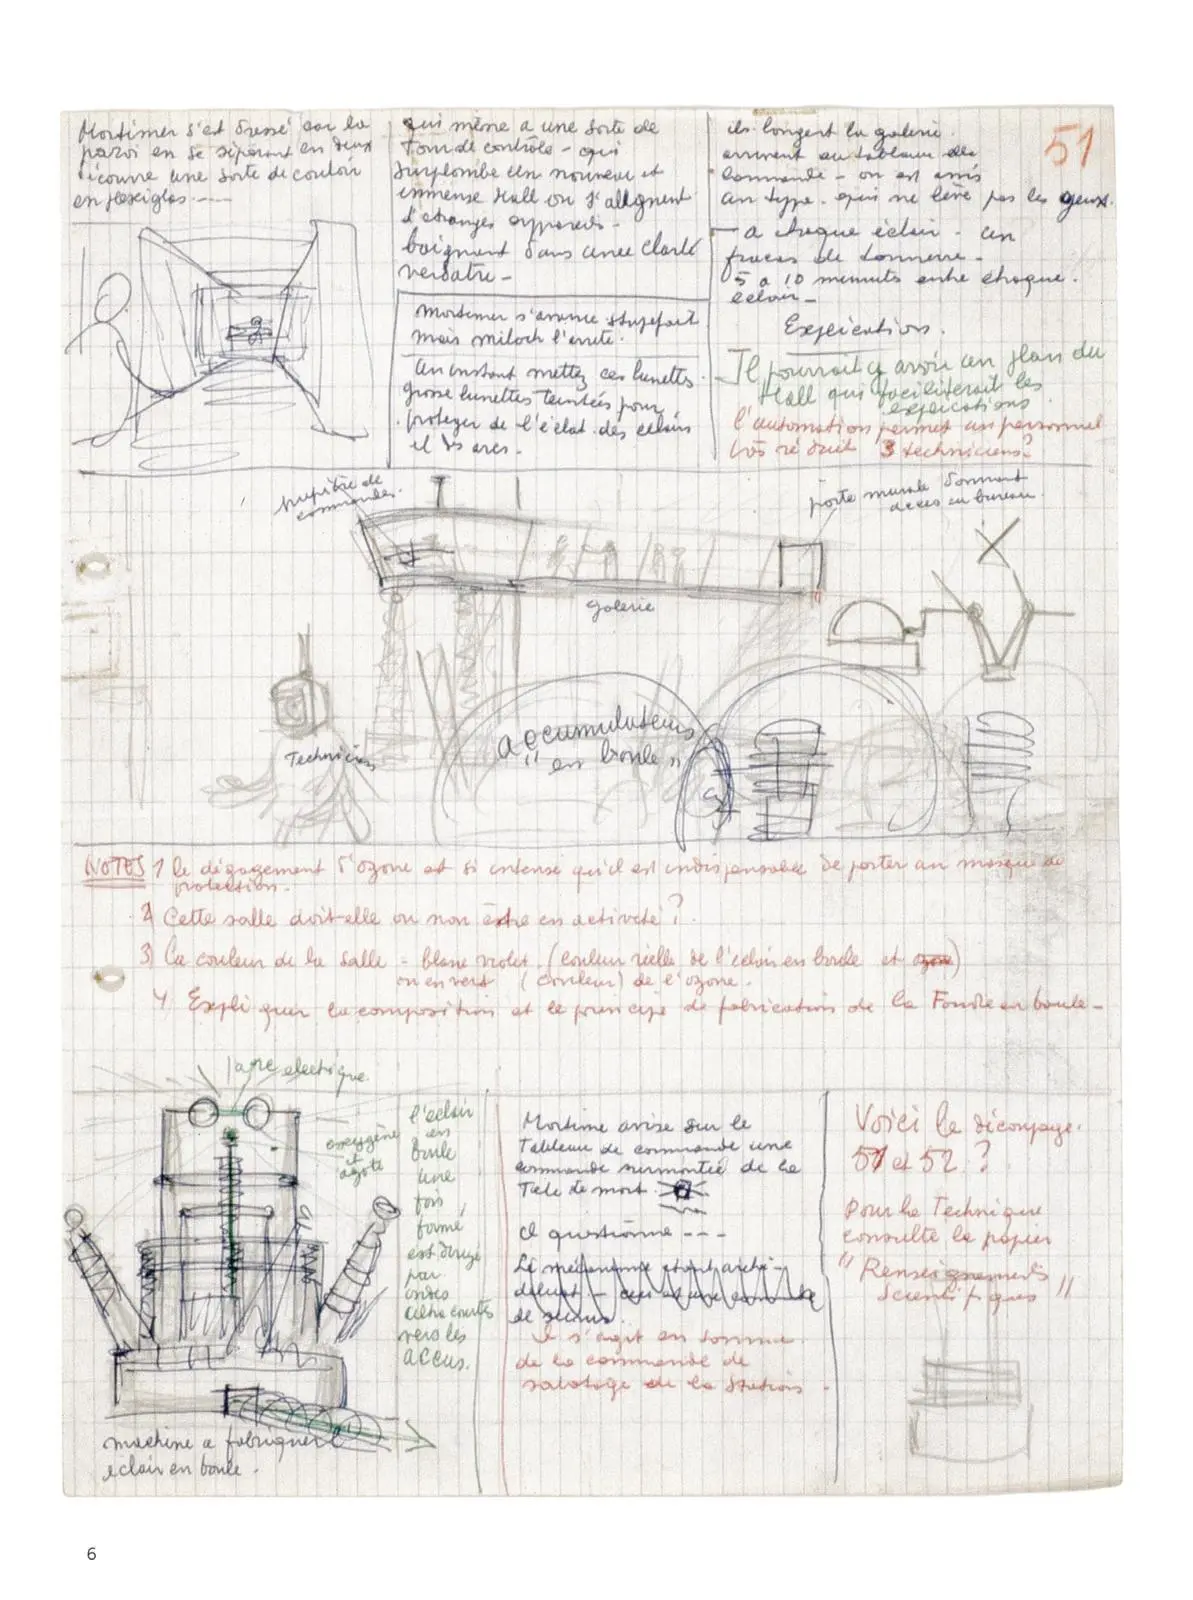 51
Mortimer s'est dressé car la
paroi en se séparant en deux
découvre une sorte de couloir
en plexiglas ----
qui mène a une sorte de
Tour de contrôle - qui
surplombe un nouveau et
immense Hall ou s'allignent
d'étranges appareils -
baignant dans une clarté
verdatre -
Mortimer s'avance stupéfait
mais miloch l'arrete.
Un instant mettez ces lunettes.
grosse lunettes teintées pour
proteger de l'éclat des éclairs
et des arcs.
ils longent la galerie.
arrivent au tableau de
commande - on est amis
au type qui ne lève pas les yeux.
- a chaque éclair - un
fracas de tonnerre -
5 a 10 minuits entre chaque
éclair -
Explications.
Il pourrait y avoir un plan du
Hall qui faciliterait les
explications.
l'automation permet un personnel
très réduit 3 techniciens?
pupitre de
commandes.
porte murale donnant
acces au bureau.
galerie
Technicien
accumulateurs
"en boule"
NOTES 1 le dégagement d'ozone est si intense qu'il est indispensable de porter un masque de
protection.
2 Cette salle doit-elle ou non être en activité?
3) La couleur de la salle - blanc violet. (couleur réelle de l'éclair en boule et ozone)
ou en vert (couleur) de l'ozone.
4 Expliquer la composition et le principe de fabrication de la Foudre en boule -
arc electrique
oxygène
et
azote
l'éclair
en
boule
une
fois
formé,
est dirigé
par
ondes
ultra courtes
vers les
accus.
machine a fabriquer l'
éclair en boule.
Mortime avise sur le
Tableau de commande une
commande surmontée de la
Tete de mort.
Il questionne ---
Le mécanisme étant archi-
de secours.
Il s'agit en somme
de la commande de
sabotage de la station.
Voici le découpage.
51 et 52 ?
Pour la Technique
consulte le papier
"Renseignements
Scientifiques"
6